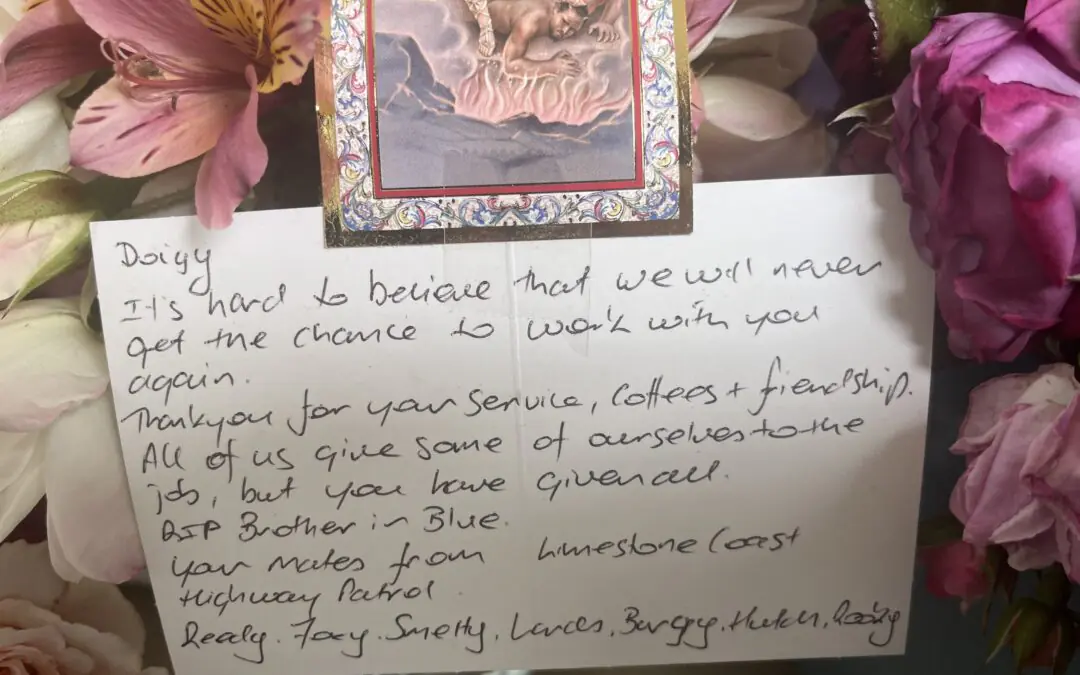 Doigy
It's hard to believe that we will never
get the chance to work with you
again.
Thankyou for your service, Coffees + friendship.
All of us give some of ourselves to the
job, but you have given all.
RIP Brother in Blue.
your mates from Limestone Coast
Highway Patrol.
Smetty, Hutch,